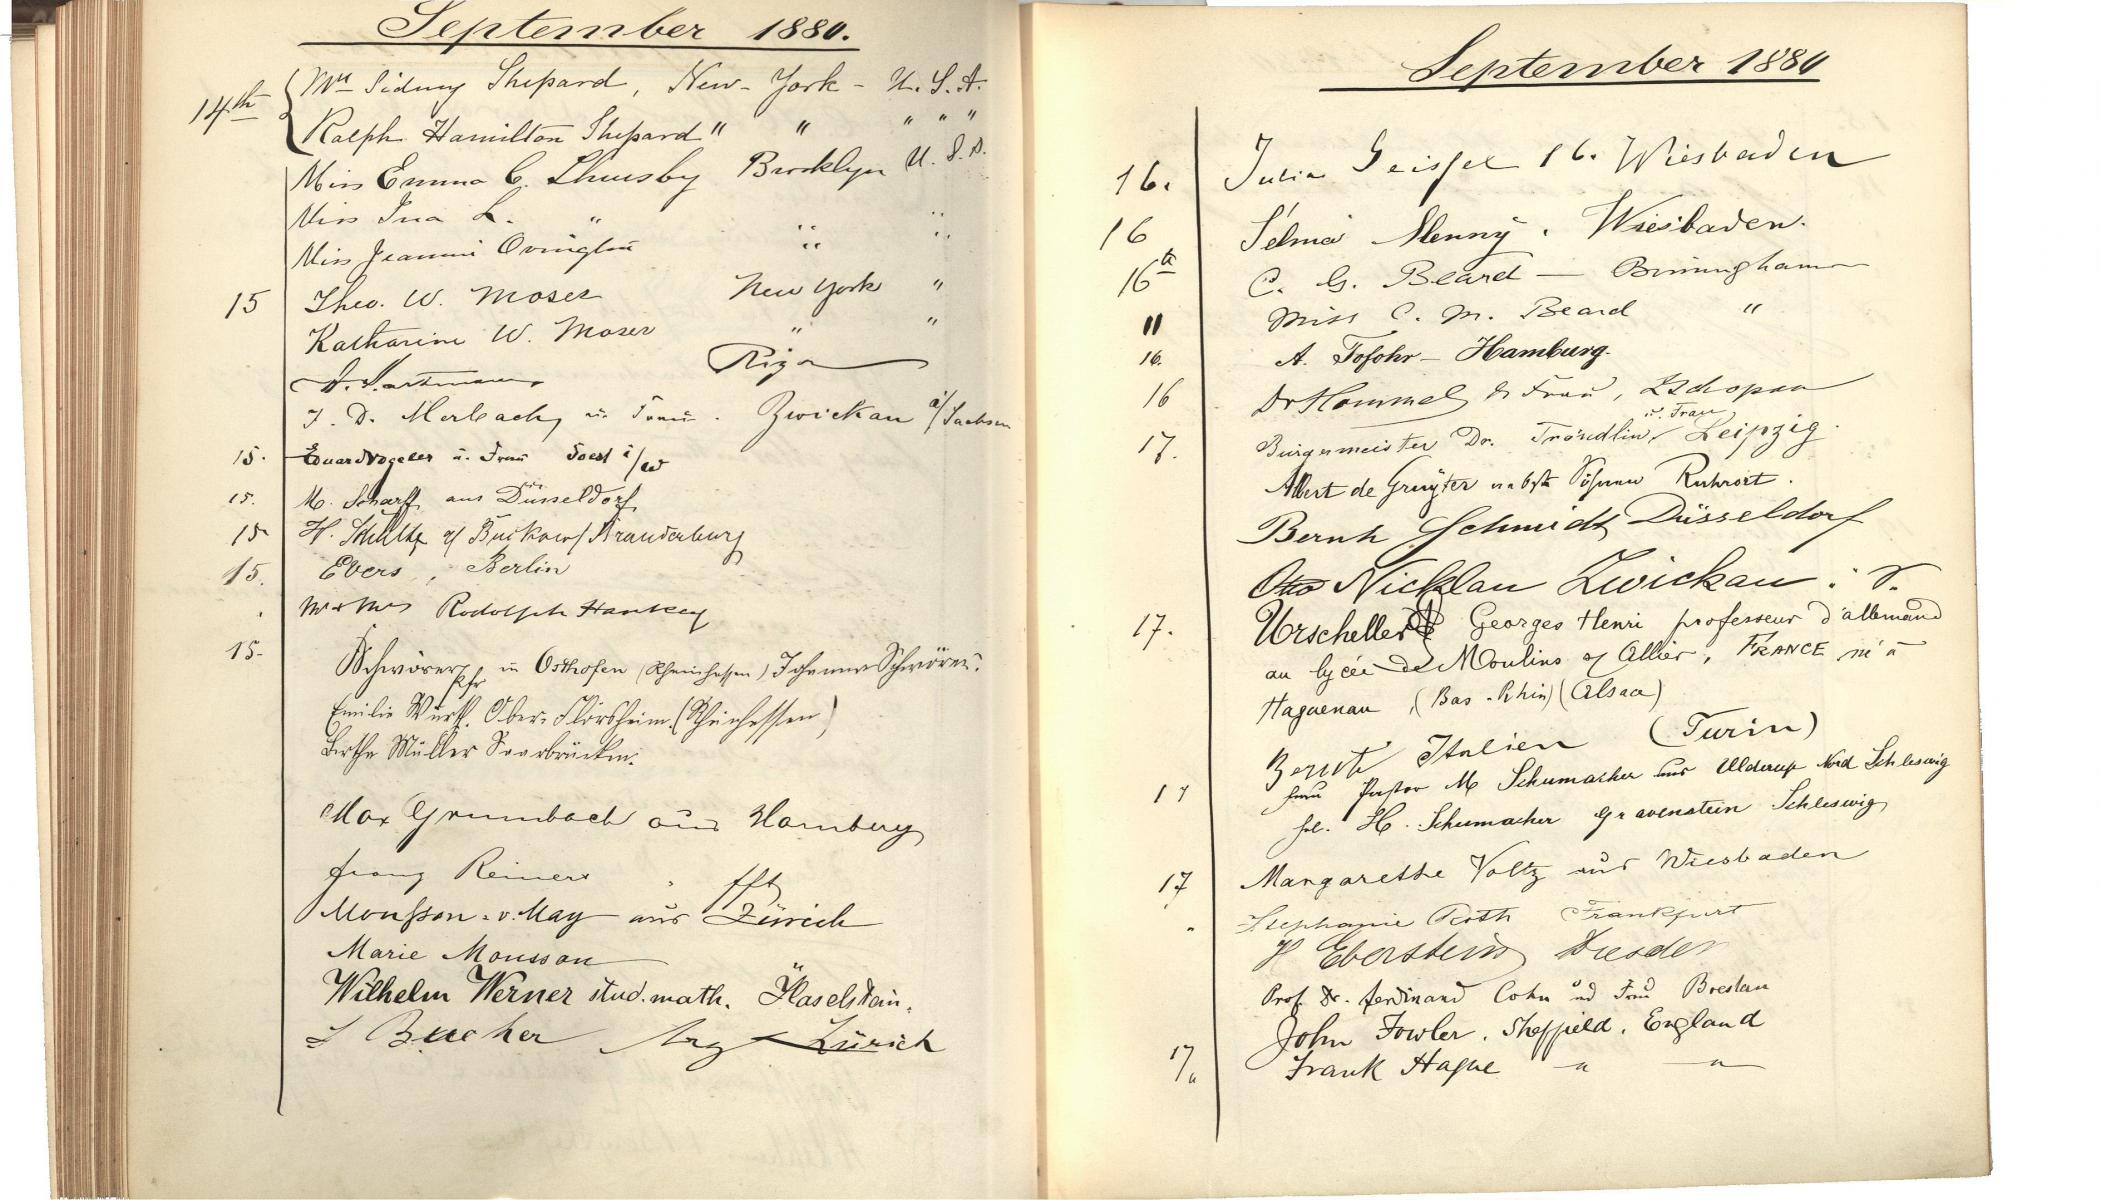 September 1880.
14th Mrs Sidney Shepard, New-York - U.S.A.
Ralph Hamilton Shepard " " " " "
Miss Emma C. Thursby Brooklyn U.S.A.
Miss Ina L. " " "
Miss Jeannie Ovington " "
15 Theo. W. Moser New York "
Katharine W. Moser " "
A. Hartmann, Riga
F. D. Merbach, u. Frau. Zwickau i/Sachsen
15. Eduard Vogeler u. Frau Soest i/W
15. M. Scharff aus Düsseldorf
15 H. Schultz a/ Buckow/Brandenburg
15. Evers, Berlin
Mr & Mrs Rodolph Hankey
15. Schwörer, Pfr in Osthofen (Rheinhessen) Johanna Schwörer.
Emilie Würth. Ober-Flörsheim. (Rheinhessen)
Berthe Müller Saarbrücken.
Max Grumbach aus Hamburg
Franz Reiners
Mousson-v. May aus Zürich
Marie Mousson
Wilhelm Werner stud. math. Haselstein.
Bucher Zürich
September 1880
16. Julia Geissel 16. Wiesbaden
16 Selma Menny. Wiesbaden.
16th C. G. Beard — Birmingham
" Miss C. M. Beard "
16. A. Tofohr - Hamburg.
16 Dr Hommel & Frau, Zschopau
17. Burgermeister Dr. Tröndlin u. Frau, Leipzig.
Albert de Gruyter nebst Söhnen Ruhrort.
Bernh Schmidt Düsseldorf
Otto Nicklau Zwickau i. S.
17. Urscheller Georges Henri professeur d'allemand
au lycée de Moulins s/ Allier, FRANCE, né à
Haguenau, (Bas-Rhin) (Alsace)
Italien (Turin)
17 Frau Pastor M Schumacher aus Ulderup Nord Schleswig
frl. H. Schumacher Gravenstein Schleswig
17 Margarethe Voltz aus Wiesbaden
" Stephanie Roth Frankfurt
H Eberstein Dresden
Prof. Dr. Ferdinand Cohn und Frau Breslau
John Fowler. Sheffield. England
17 " Frank Hague " "